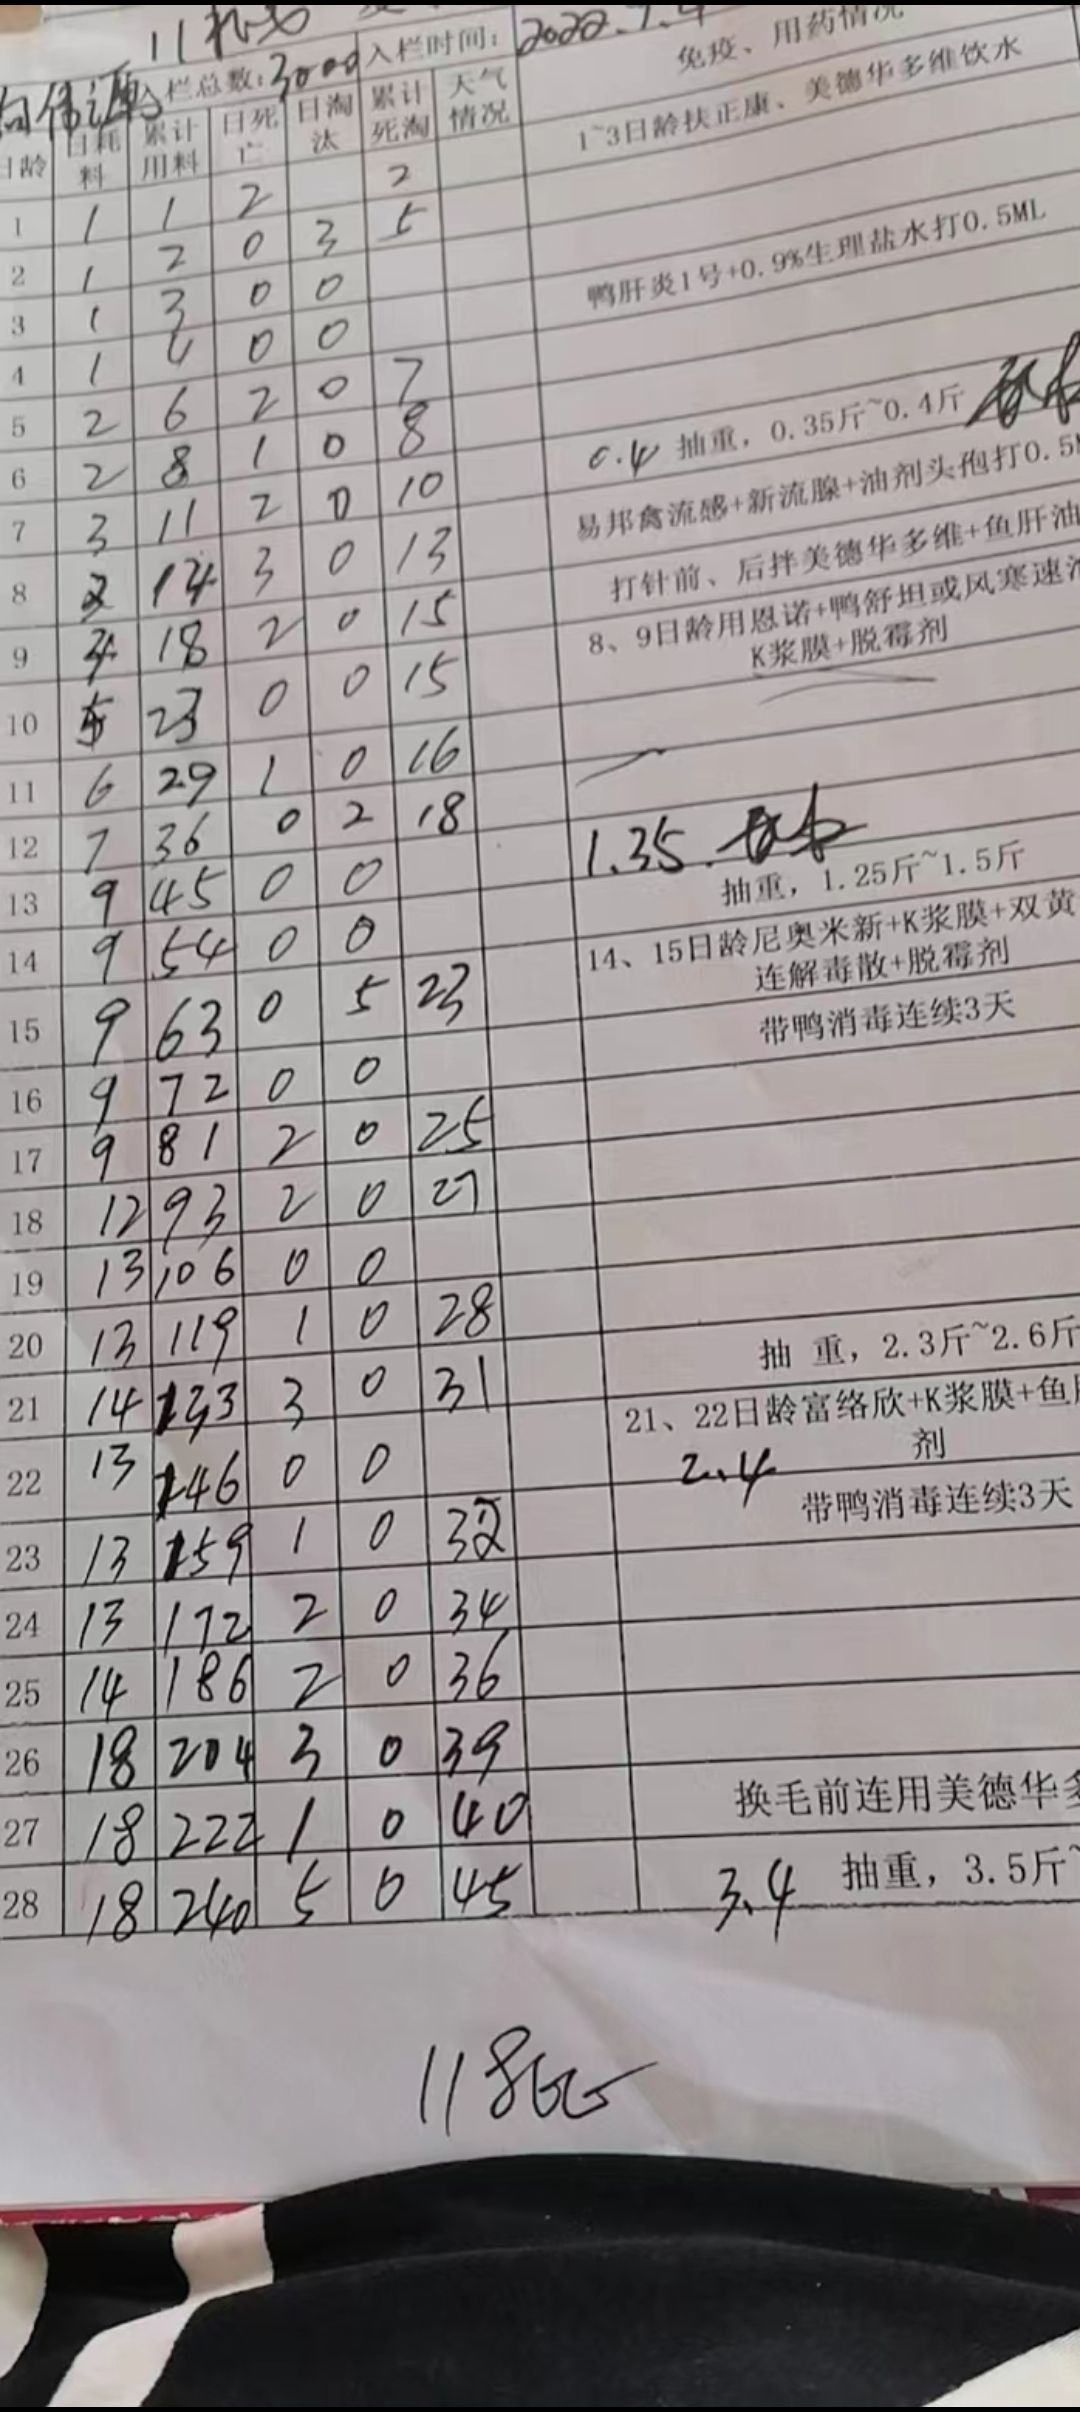 入栏总数:3000 入栏时间: 2022.7.4
日龄 日耗料 累计用料 日死亡 日淘汰 累计死淘 天气情况 免疫、用药情况
1 1 1 2 2 1~3日龄扶正康、美德华多维饮水
2 1 2 0 3 5
3 1 3 0 0 鸭肝炎1号+0.9%生理盐水打0.5ML
4 1 4 0 0
5 2 6 2 0 7
6 2 8 1 0 8 0.4 抽重，0.35斤~0.4斤
7 3 11 2 0 10 易邦禽流感+新流腺+油剂头孢打0.5
8 3 14 3 0 13 打针前、后拌美德华多维+鱼肝油
9 4 18 2 0 15 8、9日龄用恩诺+鸭舒坦或风寒速
K浆膜+脱霉剂
10 5 23 0 0 15
11 6 29 1 0 16
12 7 36 0 2 18 1.35
13 9 45 0 0 抽重，1.25斤~1.5斤
14 9 54 0 0 14、15日龄尼奥米新+K浆膜+双黄
连解毒散+脱霉剂
15 9 63 0 5 23 带鸭消毒连续3天
16 9 72 0 0
17 9 81 2 0 25
18 12 93 2 0 27
19 13 106 0 0
20 13 119 1 0 28 抽 重，2.3斤~2.6斤
21 14 133 3 0 31 21、22日龄富络欣+K浆膜+鱼
剂
22 13 146 0 0 2.4 带鸭消毒连续3天
23 13 159 1 0 32
24 13 172 2 0 34
25 14 186 2 0 36
26 18 204 3 0 39
27 18 222 1 0 40 换毛前连用美德华多
28 18 240 5 0 45 3.4 抽重，3.5斤~
118